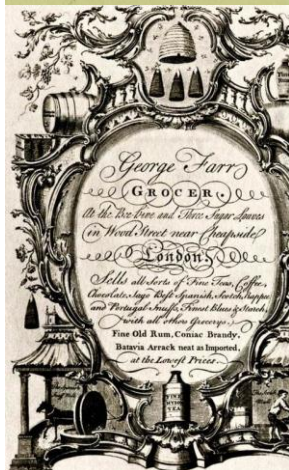 George Farr
GROCER.
At the Bee-hive and Three Sugar Loaves
in Wood Street near Cheapside
London,
Sells all Sorts of Fine Teas, Coffee,
Chocolate, Sago Best Spanish, Scotch, Rappee
and Portugal Snuffs, Finest Blues & Starch,
with all others Grocerys.
Fine Old Rum, Coniac Brandy,
Batavia Arrack neat as Imported,
at the Lowest Prices.
TEA